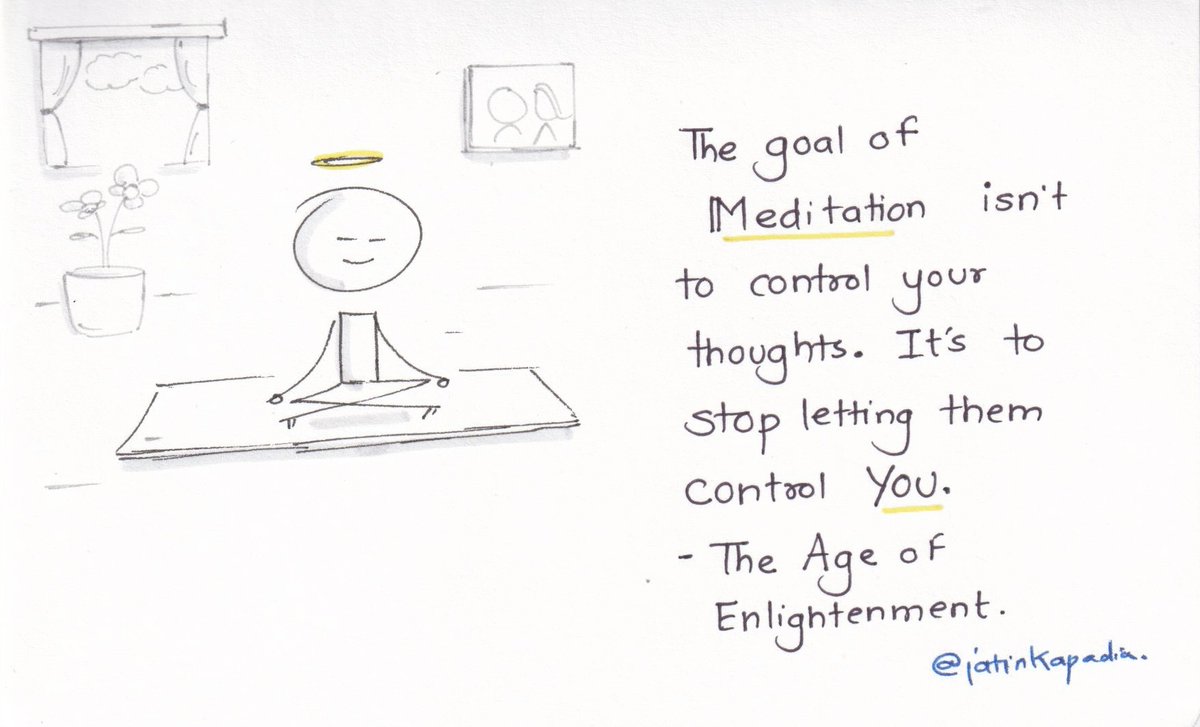 The goal of
Meditation isn't
to control your
thoughts. It's to
stop letting them
control YOU.
- The Age of
Enlightenment.
@jatinkapadia.